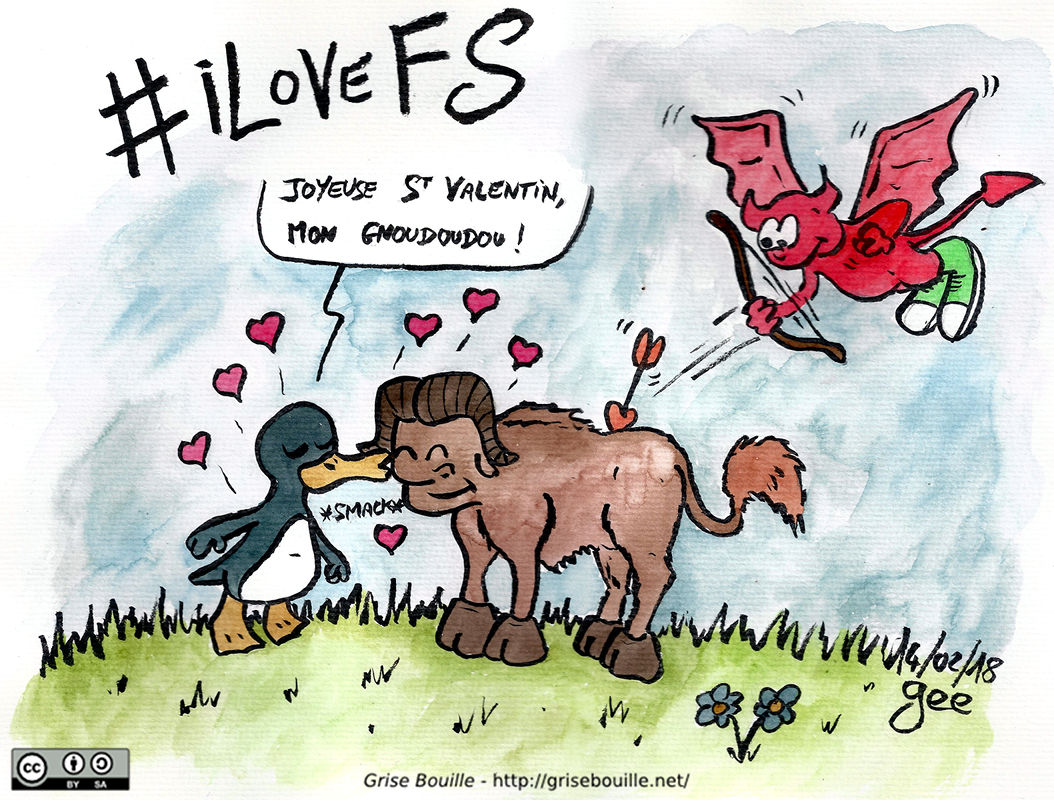 #iLoVeFS
JOYEUSE ST VALENTiN,
MON GNOUDOUDOU !
*SMACK*
14/02/18
gee
cc BY SA
Grise Bouille - http://grisebouille.net/